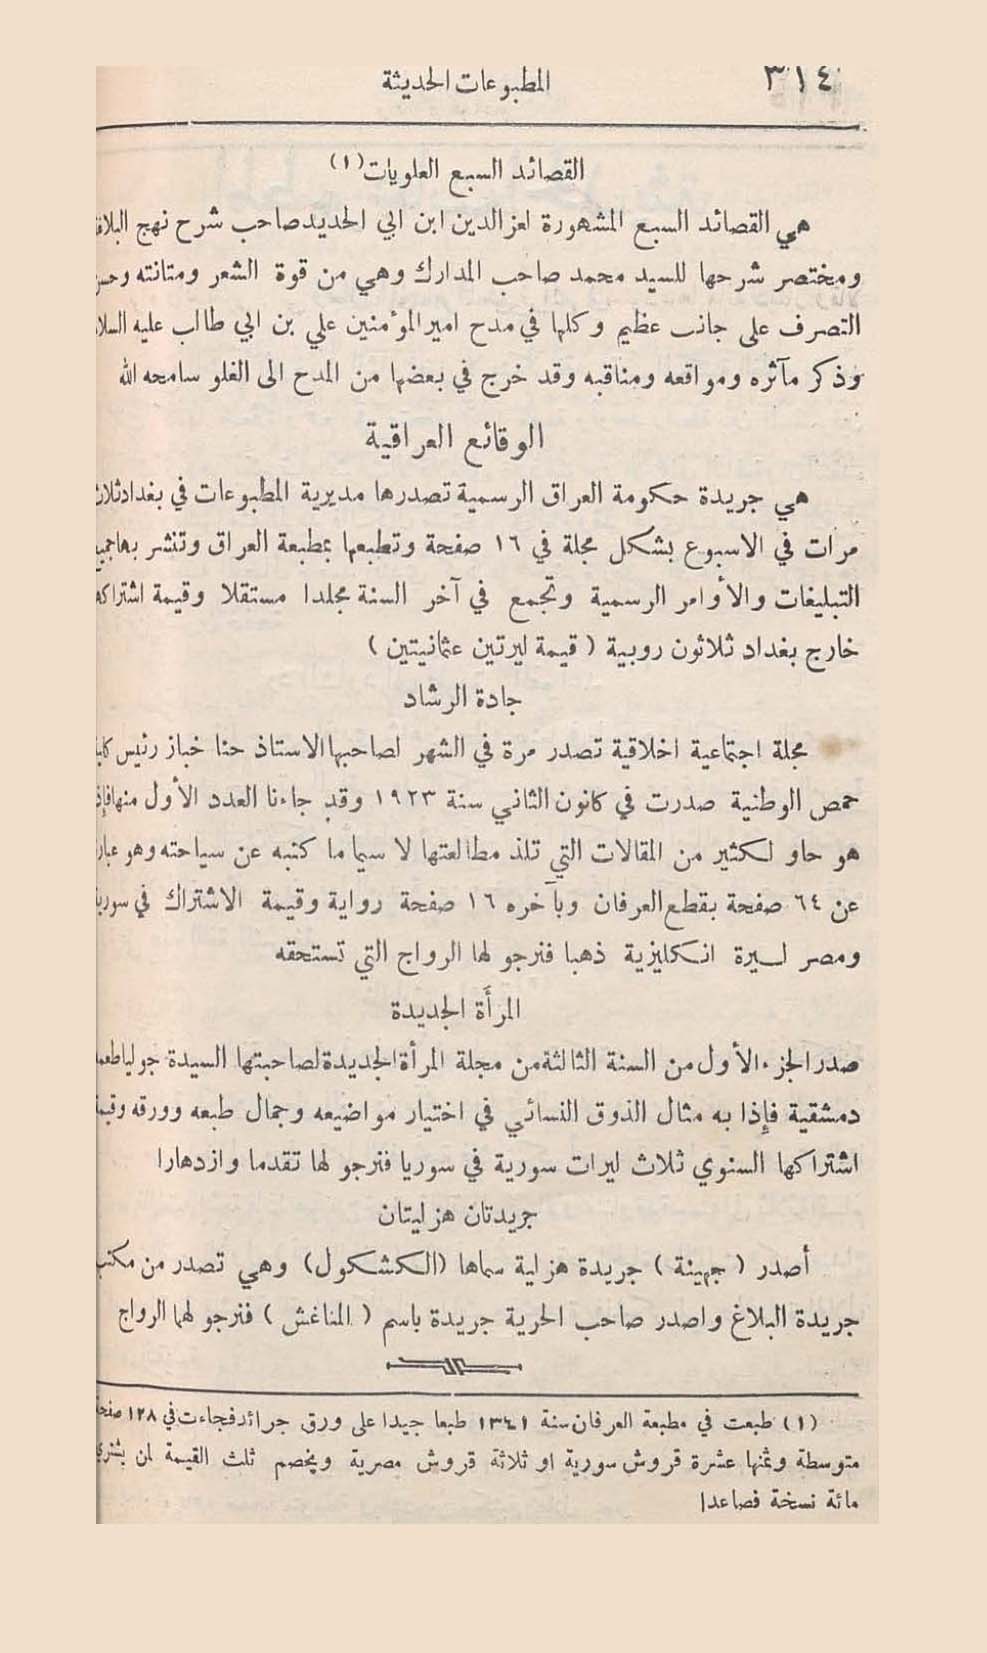 ٣١٤
المطبوعات الحديثة
القصائد السبع العلويات (١)
هي القصائد السبع المشهورة لعز الدين ابن ابي الحديد صاحب شرح نهج
ومختصر شرحها للسيد محمد صاحب المدارك وهي من قوة الشعر ومتانته
التصرف على جانب عظيم وكلها في مدح امير المؤمنين علي بن ابي طالب عليه
وذكر مآثره ومواقعه ومناقبه وقد خرج في بعضها من المدح الى الغلو سامحه الله
الوقائع العراقية
هي جريدة حكومة العراق الرسمية تصدرها مديرية المطبوعات في بغداد
مرات في الاسبوع بشكل مجلة في ١٦ صفحة وتطبعها بمطبعة العراق وتنشر بها
التبليغات والأوامر الرسمية وتجمع في آخر السنة مجلدا مستقلا وقيمة
خارج بغداد ثلاثون روبية ( قيمة ليرتين عثمانيتين )
جادة الرشاد
مجلة اجتماعية اخلاقية تصدر مرة في الشهر لصاحبها الاستاذ حنا خباز رئيس
حمص الوطنية صدرت في كانون الثاني سنة ١٩٢٣ وقد جاءنا العدد الأول منها
هو حاو لكثير من المقالات التي تلذ مطالعتها لا سيما ما كتبه عن سياحته وهو
عن ٦٤ صفحة بقطع العرفان وبآخره ١٦ صفحة رواية وقيمة الاشتراك في
ومصر ليرة انكليزية ذهبا فنرجو لها الرواج التي تستحقه
المرأَة الجديدة
صدر الجزء الأول من السنة الثالثة من مجلة المرأة الجديدة لصاحبتها السيدة جوليا
دمشقية فإذا به مثال الذوق النسائي في اختيار مواضيعه وجمال طبعه وورقه
اشتراكها السنوي ثلاث ليرات سورية في سوريا فنرجو لها تقدما وازدهارا
جريدتان هزليتان
أصدر ( جهينة ) جريدة هزلية سماها (الكشكول) وهي تصدر من
جريدة البلاغ واصدر صاحب الحرية جريدة باسم ( المناغش ) فنرجو لهما الرواج
(١) طبعت في مطبعة العرفان سنة ١٣٤١ طبعا جيدا على ورق جرائد فجاءت في ١٢٨
متوسطة وثمنها عشرة قروش سورية او ثلاثة قروش مصرية ويخصم ثلث القيمة لمن
مائة نسخة فصاعدا